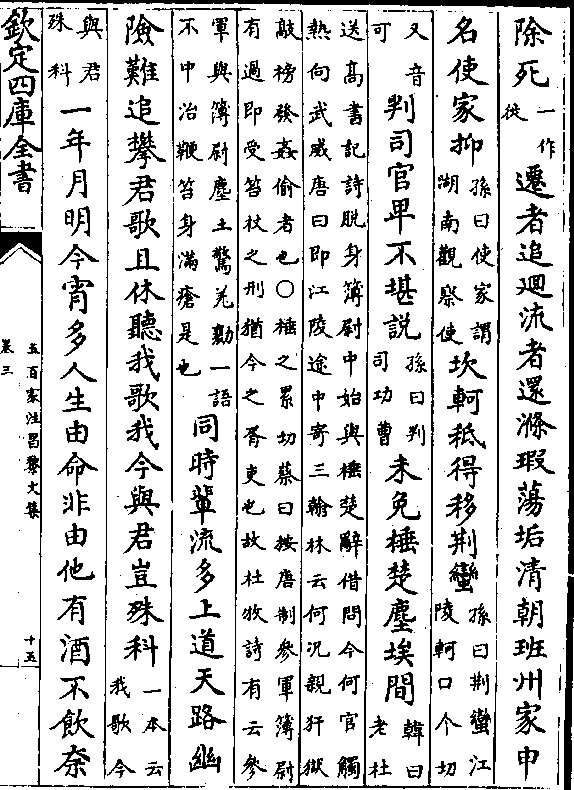 除死一作徙遷者追迴流者還滌瑕蕩垢清朝班州家申
名使家抑孫曰使家謂湖南觀察使坎軻秪得移荆蠻孫曰荆蠻江陵軻口个切
又音可判司官卑不堪説孫曰判司功曹未免棰楚塵埃間韓曰老杜
送髙書記詩脱身簿尉中始與棰楚辭借問今何官觸
熱向武威唐曰即江陵途中寄三翰林云何況親犴獄
敲榜發姦偷者也○棰之累切蔡曰按唐制參軍簿尉
有過即受笞杖之刑猶今之胥吏也故杜牧詩有云參
軍與簿尉塵土驚羌勷一語不中治鞭笞身滿瘡是也同時輩流多上道天路幽
險難追攀君歌且休聽我歌我今與君豈殊科一本云我歌今
與君殊科一年月明今宵多人生由命非由他有酒不飲奈
欽定四庫全書
五百家注昌黎文集
卷三
十五